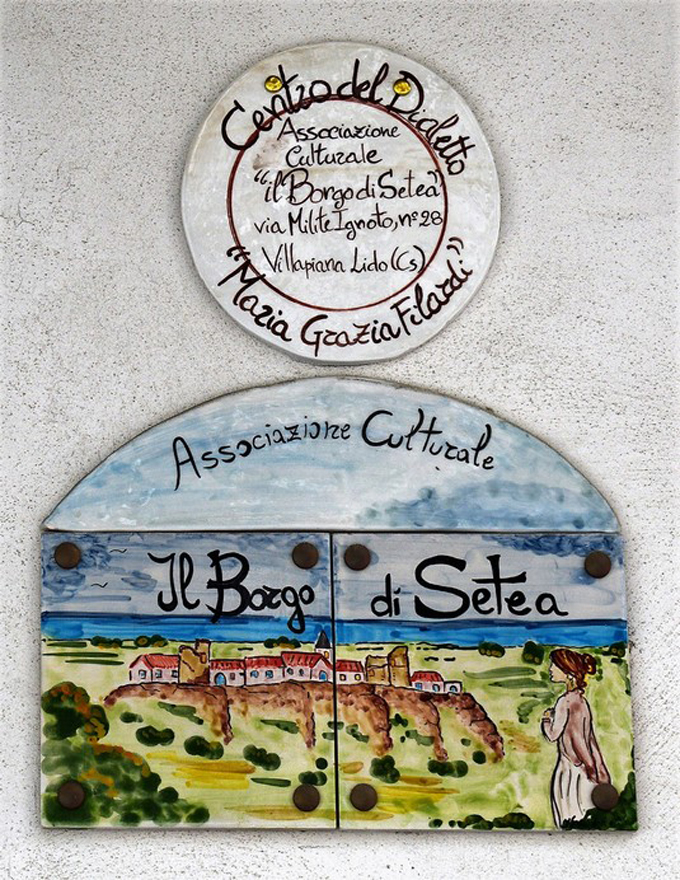 Centro del Dialetto
Associazione
Culturale
"il Borgo di Setea"
via Milite Ignoto, n° 28
Villapiana Lido (Cs)
"Maria Grazia Filardi"
Associazione Culturale
Il Borgo di Setea